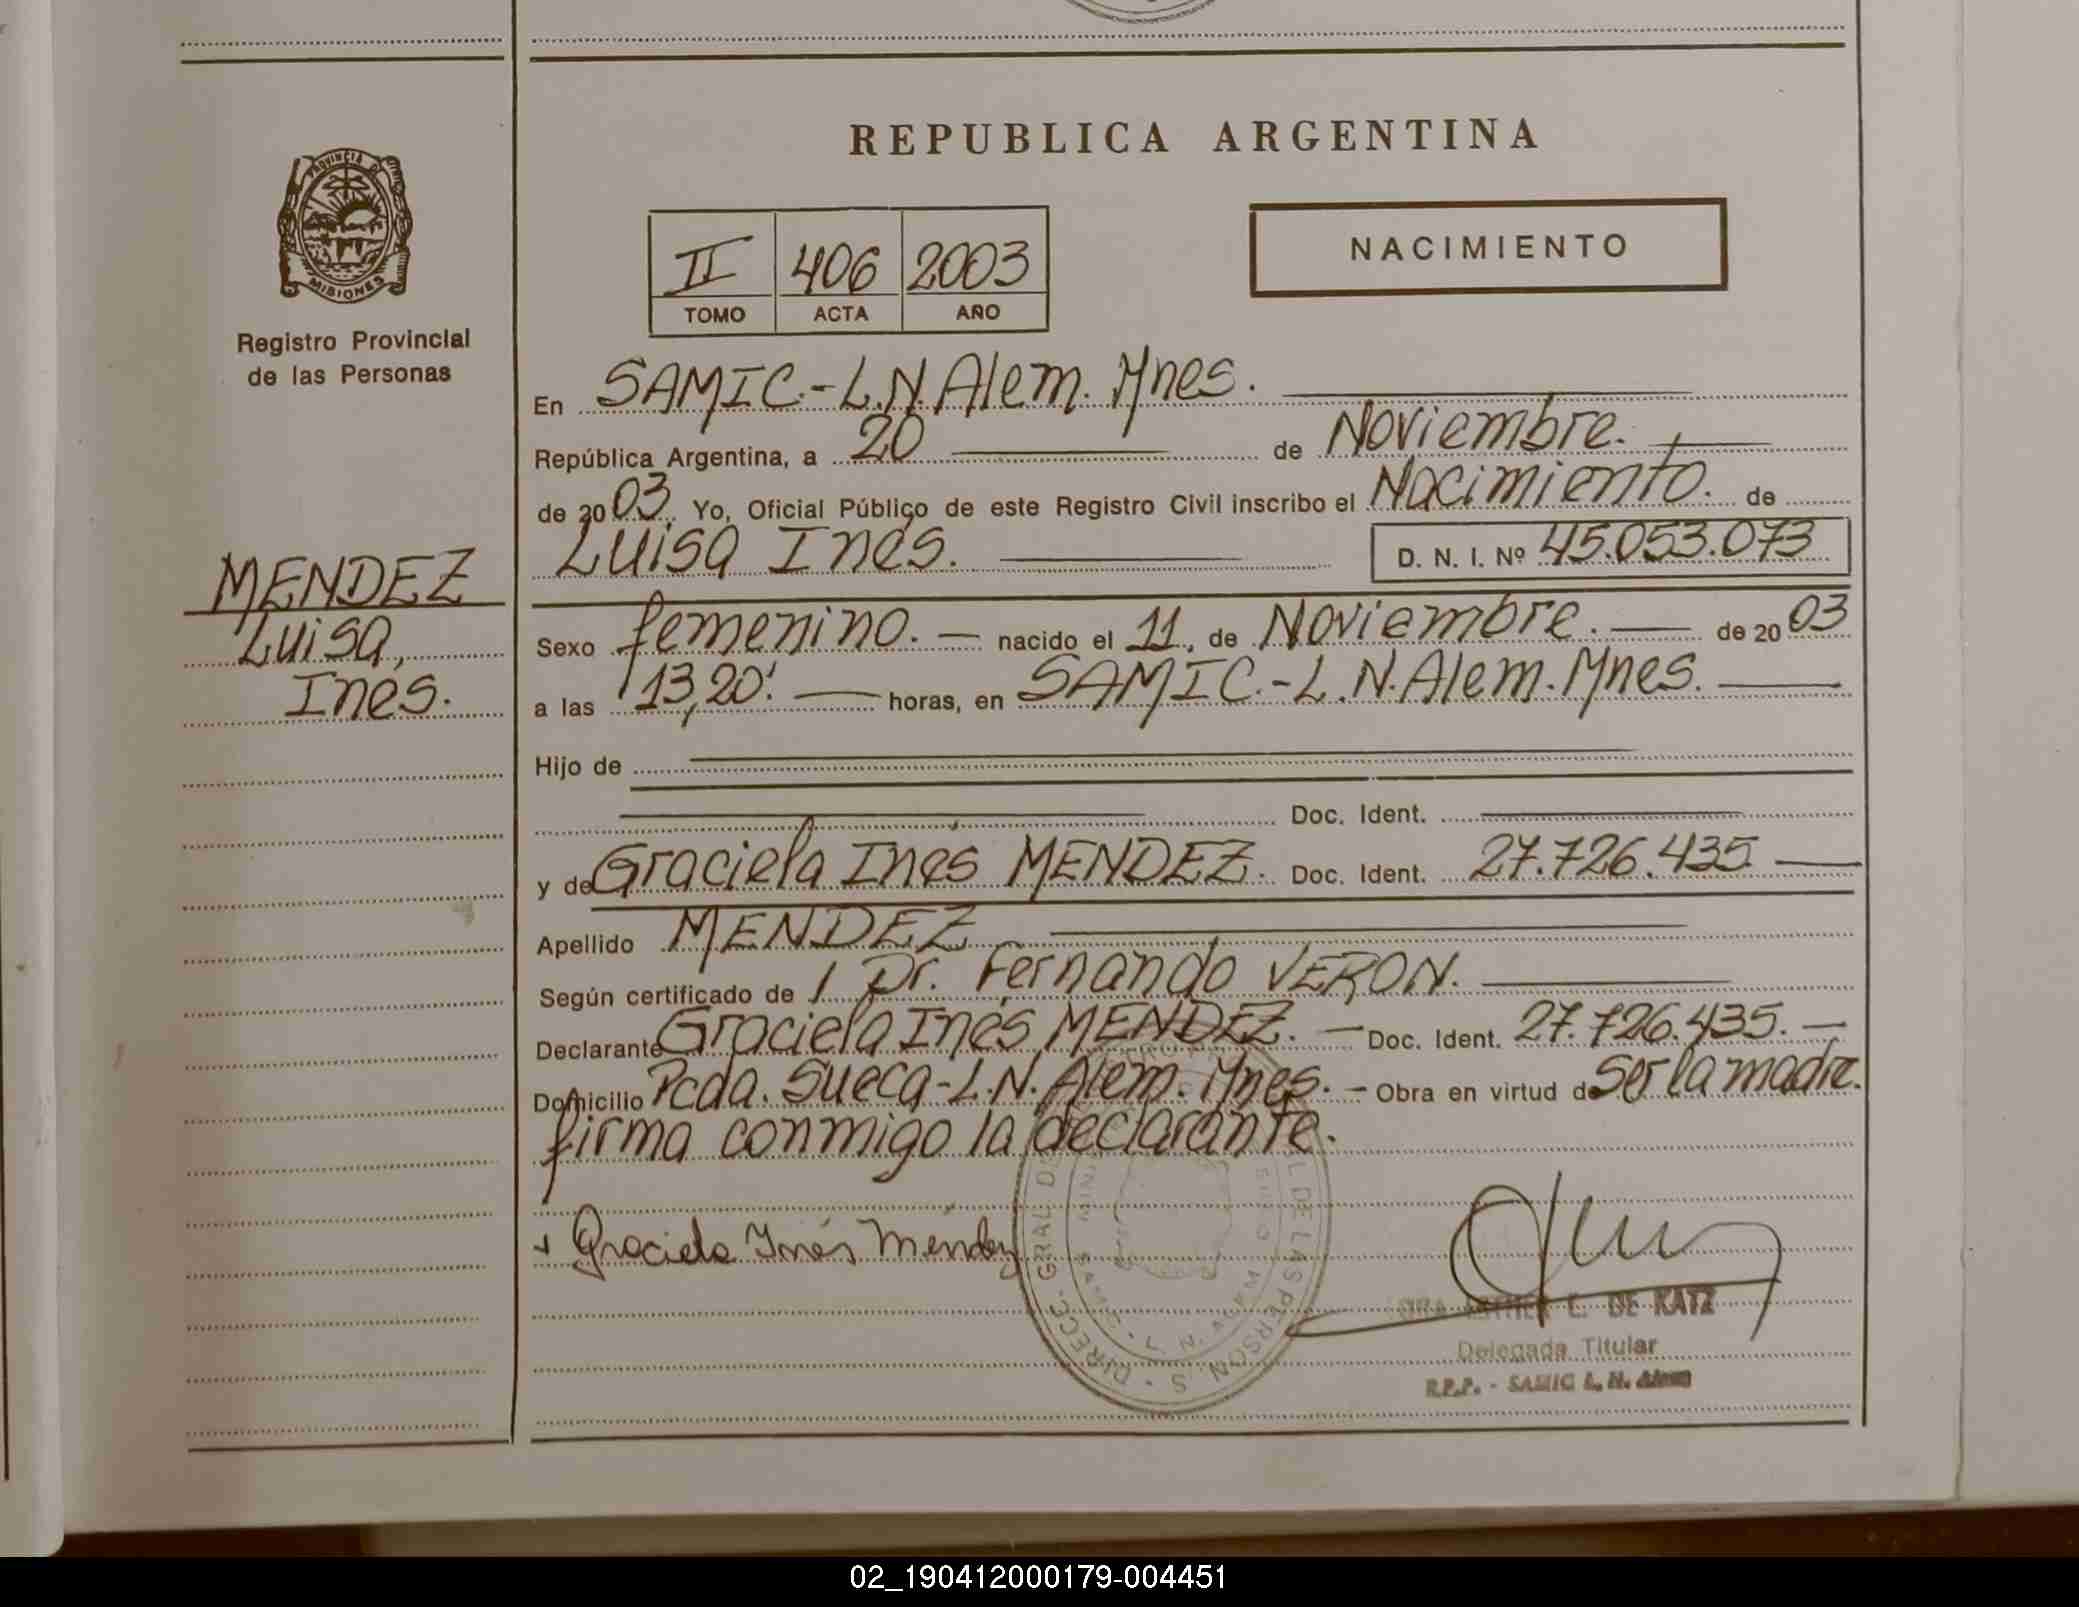 REPUBLICA ARGENTINA
PROVINCIA DE
MISIONES
Registro Provincial
de las Personas
II 406 2003
TOMO ACTA AÑO
NACIMIENTO
En SAMIC.-L.N.Alem. Mnes.
República Argentina, a 20 de Noviembre.
de 2003. Yo, Oficial Público de este Registro Civil inscribo el Nacimiento. de
Luisa Inés. D. N. I. Nº 45.053.073
MENDEZ
Luisa,
Inés.
Sexo femenino. nacido el 11, de Noviembre. de 2003
a las 13,20' horas, en SAMIC.-L.N.Alem.Mnes.
Hijo de
Doc. Ident.
y de Graciela Inés MENDEZ. Doc. Ident. 27.726.435
Apellido MENDEZ
Según certificado de / Dr. Fernando VERON.
Declarante Graciela Inés MENDEZ. Doc. Ident. 27.726.435.
Domicilio Pcda. Sueca-L.N. Alem. Mnes. Obra en virtud de Ser la madre.
firma conmigo la declarante.
Graciela Inés Méndez
DIRECC. GRAL DE L DE LAS PERSON S
SAMIC L. N. ALEM
DE KATZ
Delegada Titular
R.P.P. - SAMIC L. N. Alem
02_190412000179-004451